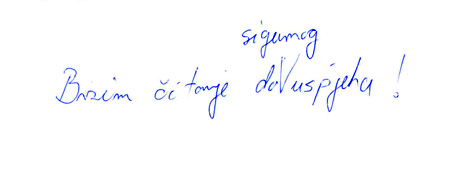 sigurnog
Brzim čitanje do uspjeha !